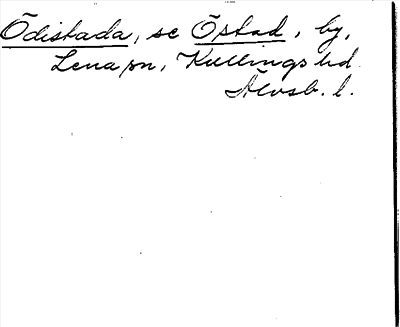 Ödistada, se Östad, by,
Lena sn, Kullings hd
Älvsb. l.